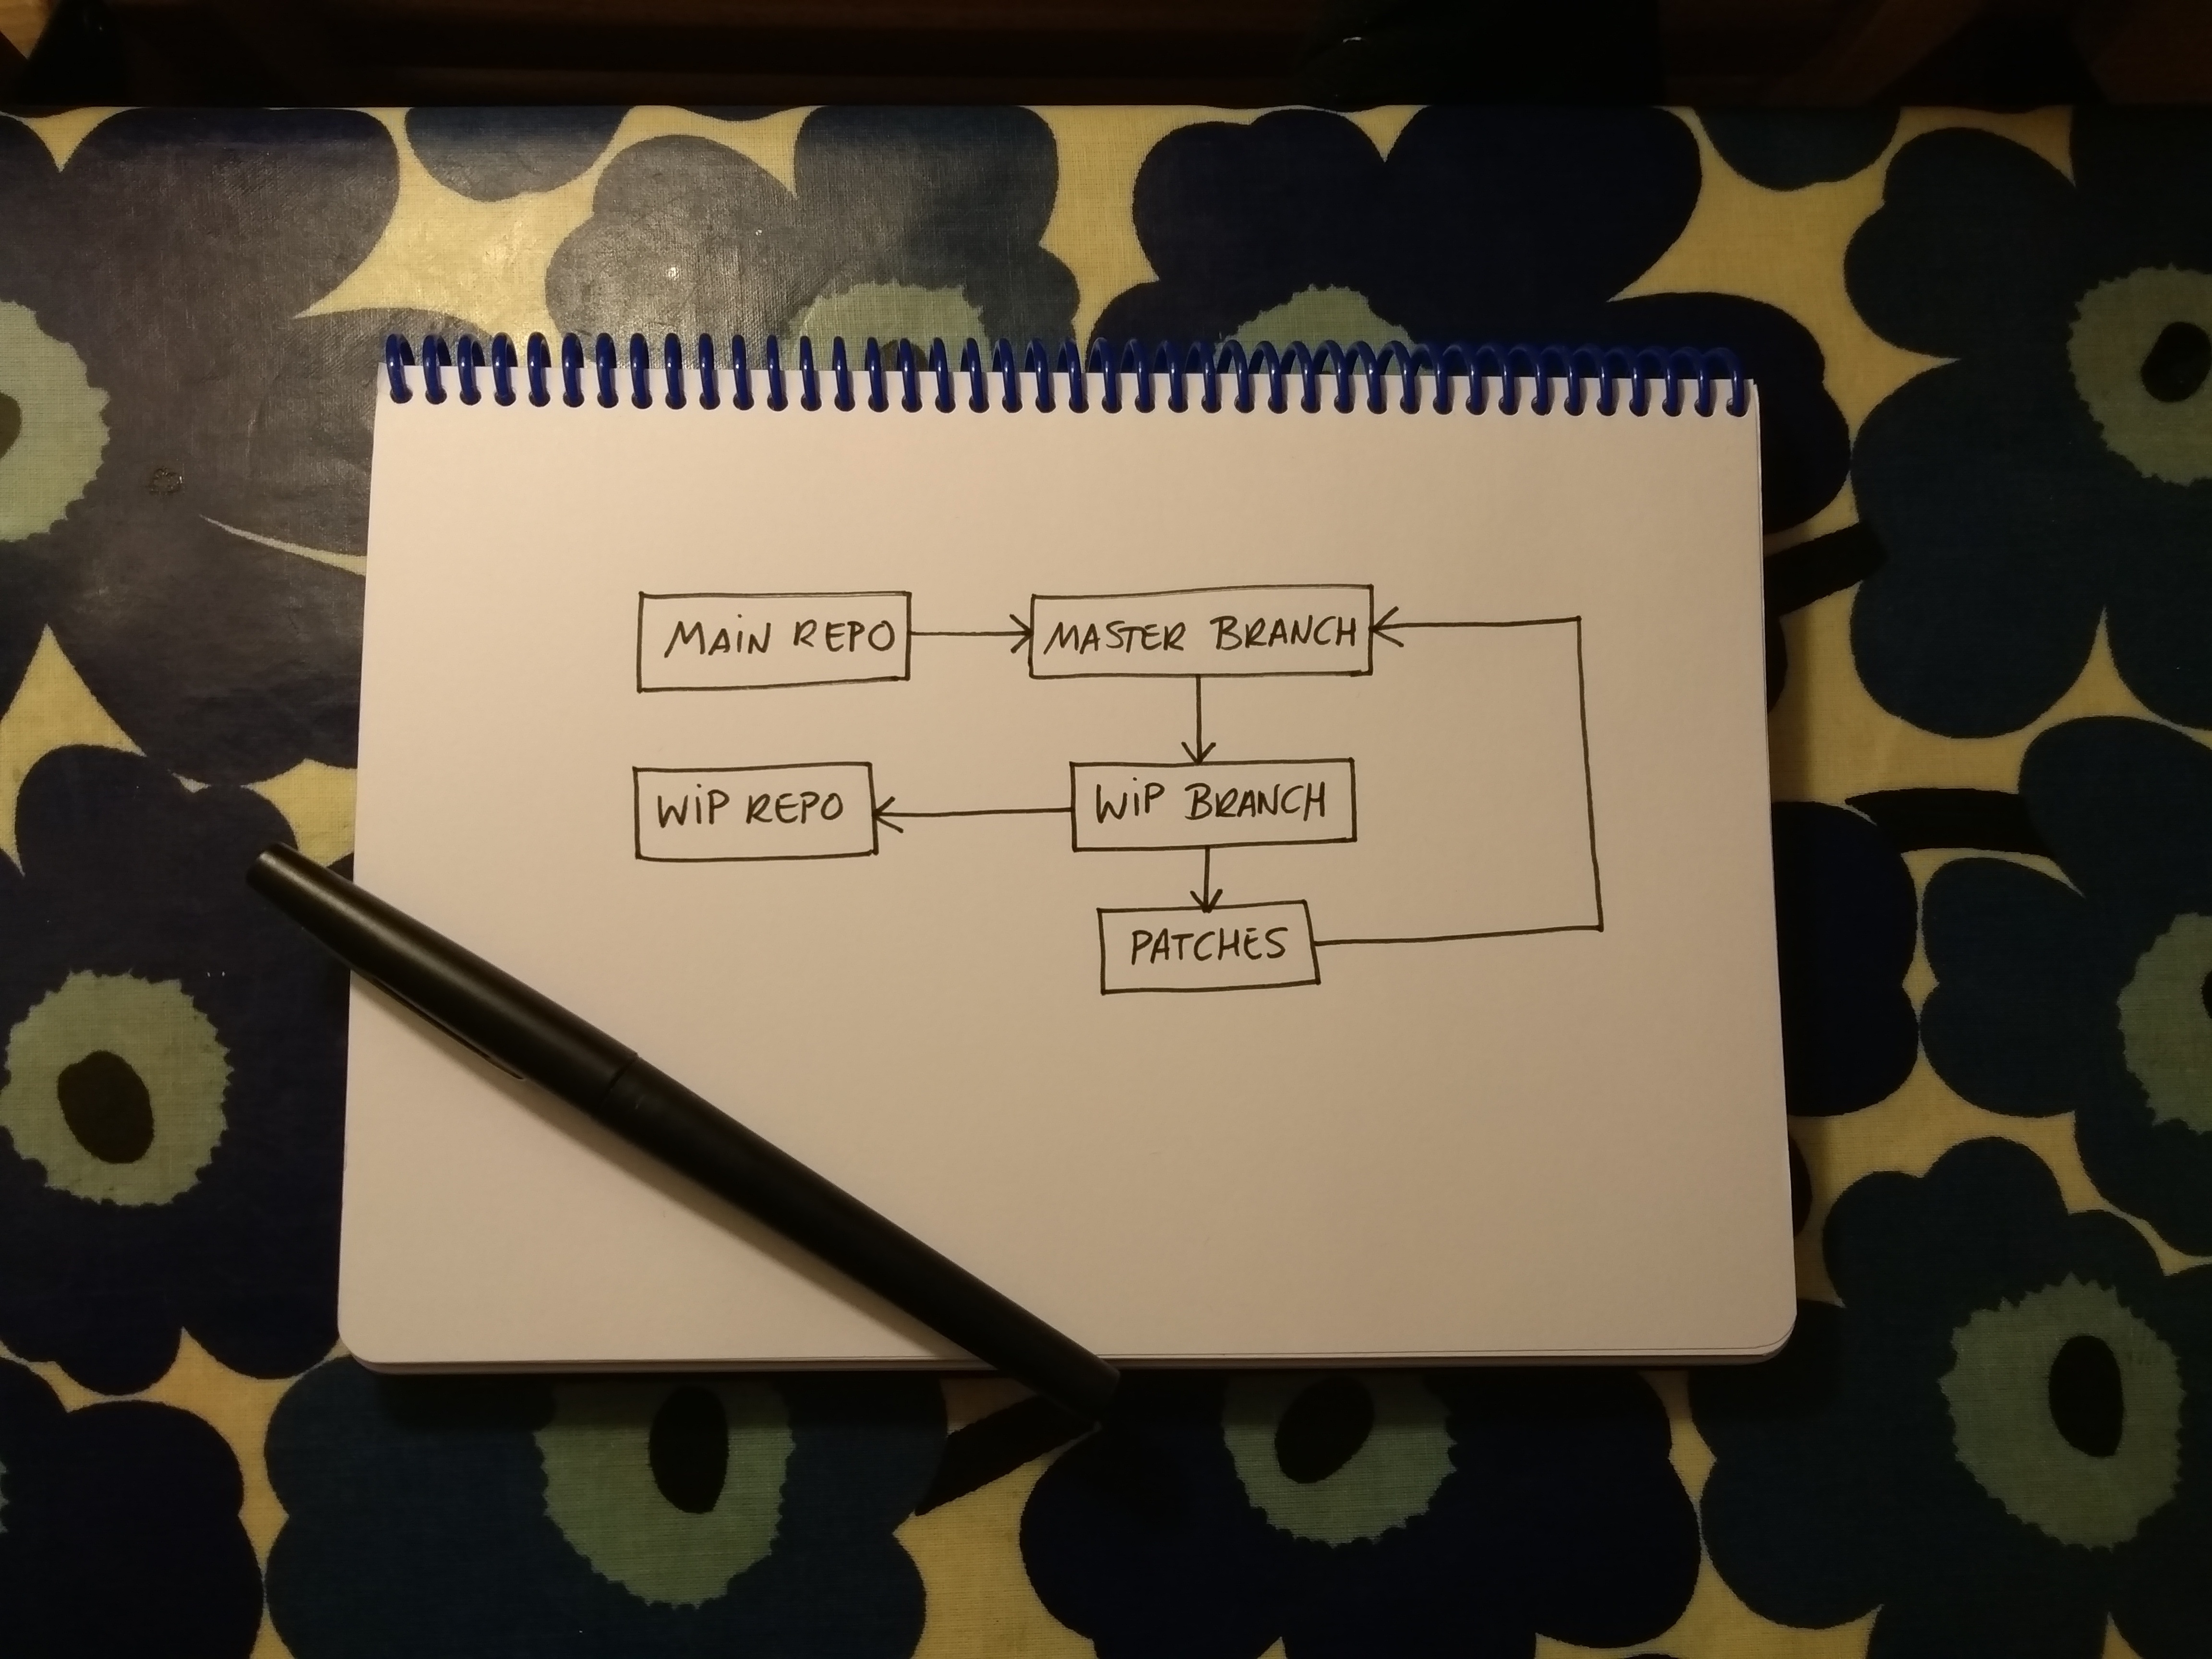 MAiN REPO
MASTER BRANCH
WiP REPO
WiP BRANCH
PATCHES